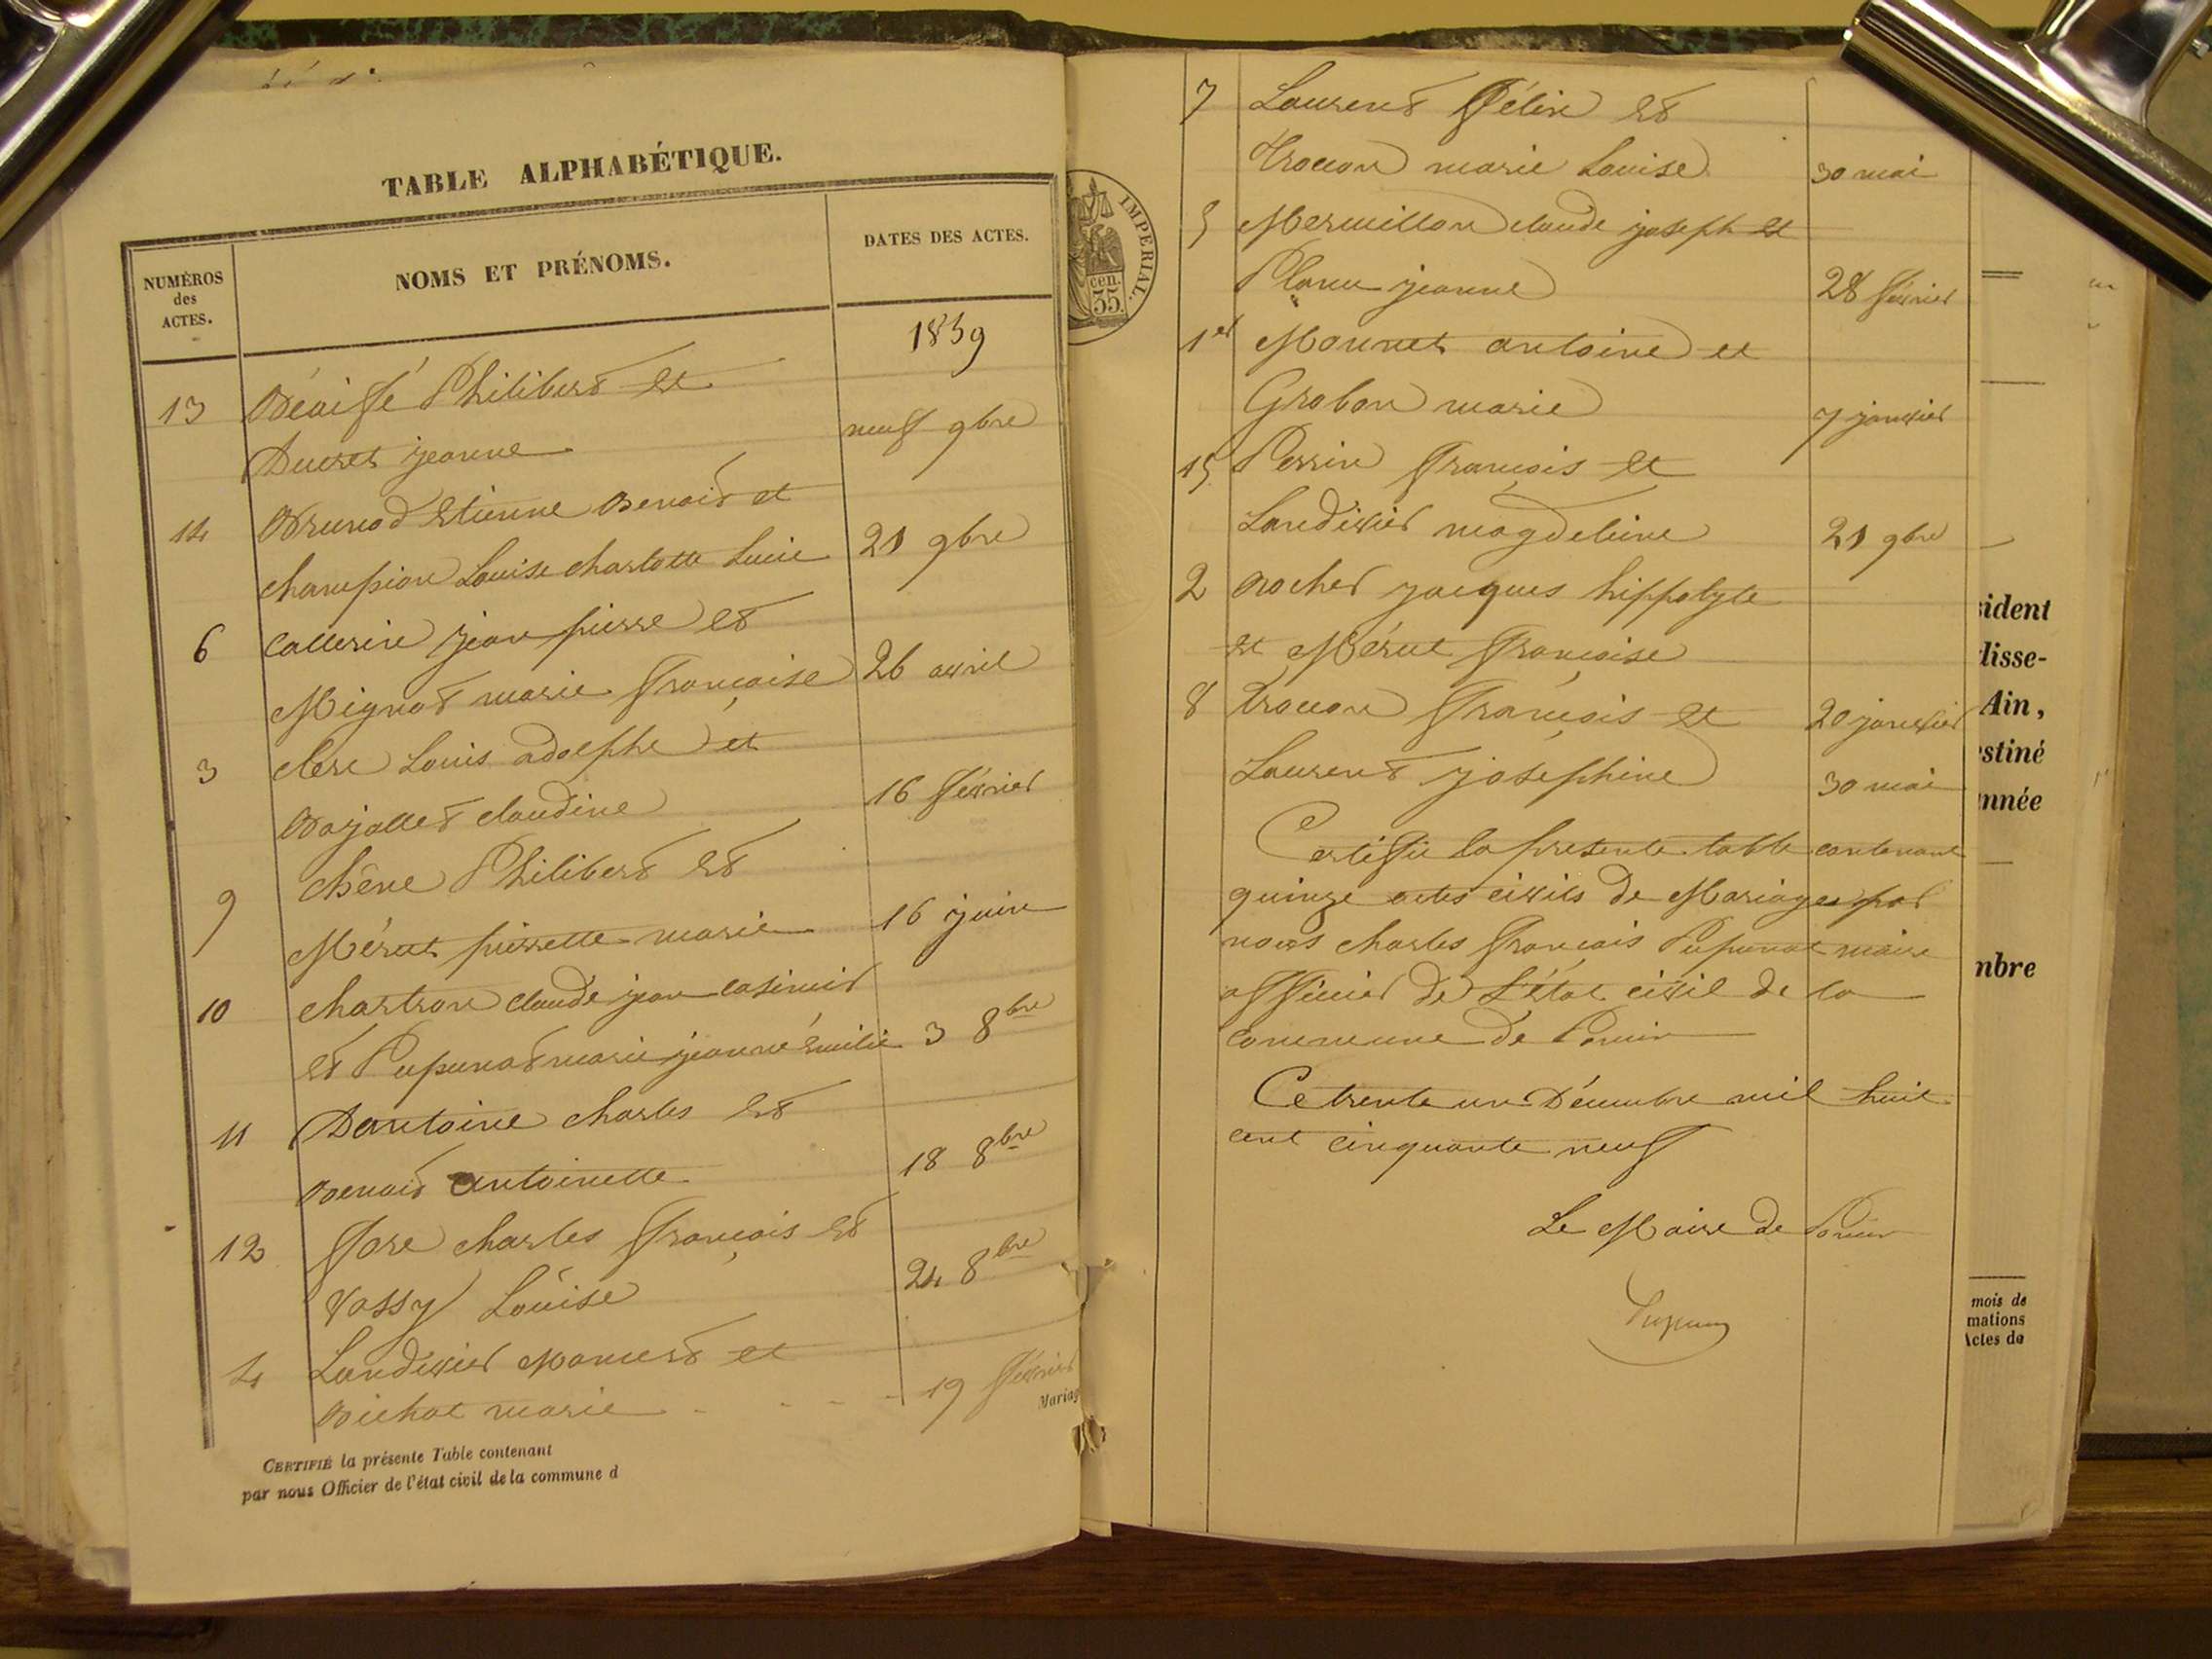 TABLE ALPHABÉTIQUE.
NUMÉROS
des
ACTES.
NOMS ET PRÉNOMS.
DATES DES ACTES.
1859
13 Béaissé Philibert et
Ducret jeanne neuf 9bre
14 Brunod Etienne Benoit et
champion Louise charlotte Lucie 21 9bre
6 Callerin jean pierre et
Mignot marie françoise 26 avril
3 clerc Louis adolphe et
Bajallet claudine 16 février
9 chêne Philibert et
Mérut pierrette marie 16 juin
10 chartron claude jean casimir
et Pupunat marie jeanne émilie 3 8bre
11 Dantoine charles et
Benoit antoinette 18 8bre
12 fore charles françois et
Vassy Louise 24 8bre
4 Landivier Mamert et
Bichat marie 19 février
Mariag
CERTIFIÉ la présente Table contenant
par nous Officier de l'état civil de la commune d
IMPERIAL.
cen.
35.
7 Laurent félix et
Trocon marie Louise 30 mai
5 Mermillon claude joseph et
jeanne 28 février
1er Monnet antoine et
Grobon marie 7 janvier
15 Perrin françois et
Landivier magdeleine 21 9bre
2 Rocher jacques hippolyte
et Mérut françoise
8 Trocon françois et 20 janvier
Laurent josephine 30 mai
Certifié la presente table contenant
quinze actes civils de Mariages par
nous charles françois Pupunat maire
officier de L'état civil de la
commune de Poncin
Ce trente un Décembre mil huit
cent cinquante neuf
Le Maire de Poncin
ident
lisse-
Ain,
stiné
nnée
mbre
mois de
mations
Actes de